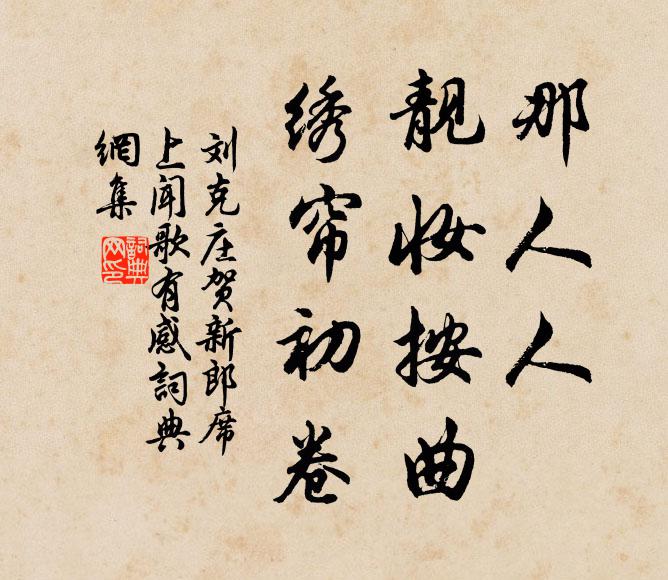 那人人
靓妆按曲
绣帘初卷
刘克庄贺新郎席
上闻歌有感词典
網集
詞典
网印